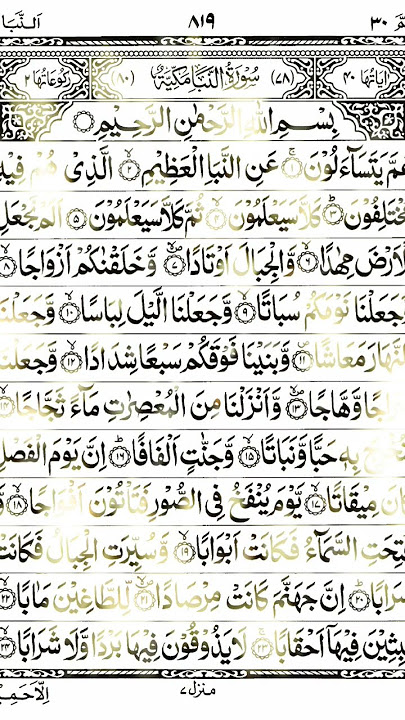 اَلنَّبَا ٨١٩ عَمَّ ٣٠
اٰیَاتُهَا ٤٠ (٧٨) سُوْرَةُ النَّبَاِ مَكِّیَّةٌ (٨٠) رُكُوْعَاتُهَا ٢
بِسْمِ اللّٰهِ الرَّحْمٰنِ الرَّحِیْمِ
عَمَّ یَتَسَآءَلُوْنَ ١ عَنِ النَّبَاِ الْعَظِیْمِ ٢ الَّذِیْ هُمْ فِیْهِ
مُخْتَلِفُوْنَ ٣ كَلَّا سَیَعْلَمُوْنَ ٤ ثُمَّ كَلَّا سَیَعْلَمُوْنَ ٥ اَلَمْ نَجْعَلِ
الْاَرْضَ مِهٰدًا ٦ وَّالْجِبَالَ اَوْتَادًا ٧ وَّخَلَقْنٰكُمْ اَزْوَاجًا ٨
وَّجَعَلْنَا نَوْمَكُمْ سُبَاتًا ٩ وَّجَعَلْنَا الَّیْلَ لِبَاسًا ١٠ وَّجَعَلْنَا
النَّهَارَ مَعَاشًا ١١ وَّبَنَیْنَا فَوْقَكُمْ سَبْعًا شِدَادًا ١٢ وَّجَعَلْنَا
سِرَاجًا وَّهَّاجًا ١٣ وَّاَنْزَلْنَا مِنَ الْمُعْصِرٰتِ مَآءً ثَجَّاجًا ١٤
لِّنُخْرِجَ بِهٖ حَبًّا وَّنَبَاتًا ١٥ وَّجَنّٰتٍ اَلْفَافًا ١٦ اِنَّ یَوْمَ الْفَصْلِ
كَانَ مِیْقَاتًا ١٧ یَّوْمَ یُنْفَخُ فِی الصُّوْرِ فَتَاْتُوْنَ اَفْوَاجًا ١٨ وَّ
فُتِحَتِ السَّمَآءُ فَكَانَتْ اَبْوَابًا ١٩ وَّسُیِّرَتِ الْجِبَالُ فَكَانَتْ
سَرَابًا ٢٠ اِنَّ جَهَنَّمَ كَانَتْ مِرْصَادًا ٢١ لِّلطَّاغِیْنَ مَاٰبًا ٢٢
لّٰبِثِیْنَ فِیْهَاۤ اَحْقَابًا ٢٣ لَا یَذُوْقُوْنَ فِیْهَا بَرْدًا وَّلَا شَرَابًا ٢٤
منزل ٧ اِلَّا حَمِیْ